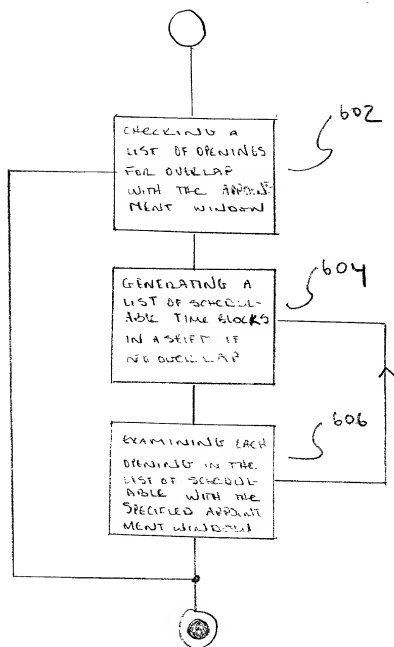 602
CHECKING A
LIST OF OPENINGS
FOR OVERLAP
WITH THE APPOINT-
MENT WINDOW
604
GENERATING A
LIST OF SCHEDUL-
ABLE TIME BLOCKS
IN A SHIFT IF
NO OVERLAP
606
EXAMINING EACH
OPENING IN THE
LIST OF SCHEDUL-
ABLE WITH THE
SPECIFIED APPOINT
MENT WINDOW